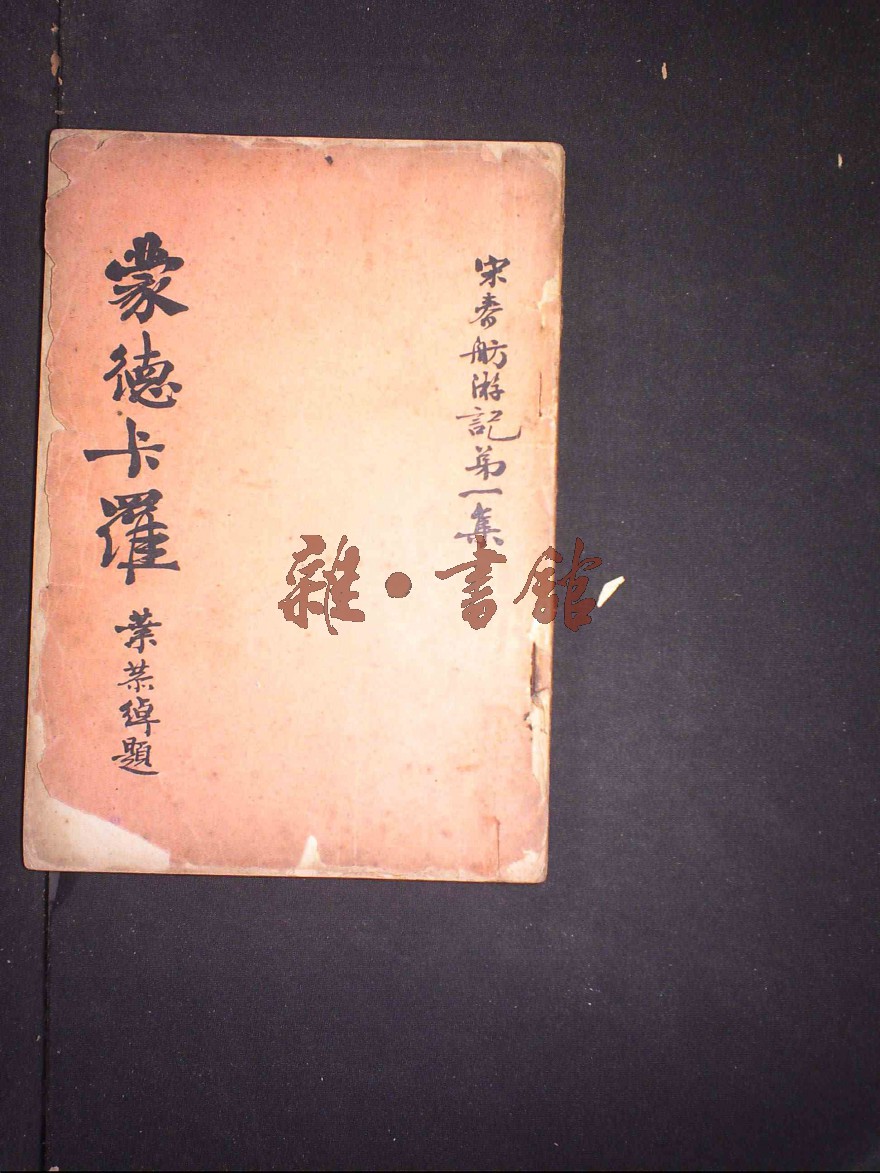 宋春舫游記第一集
蒙德卡羅
葉恭綽題
雜·書館